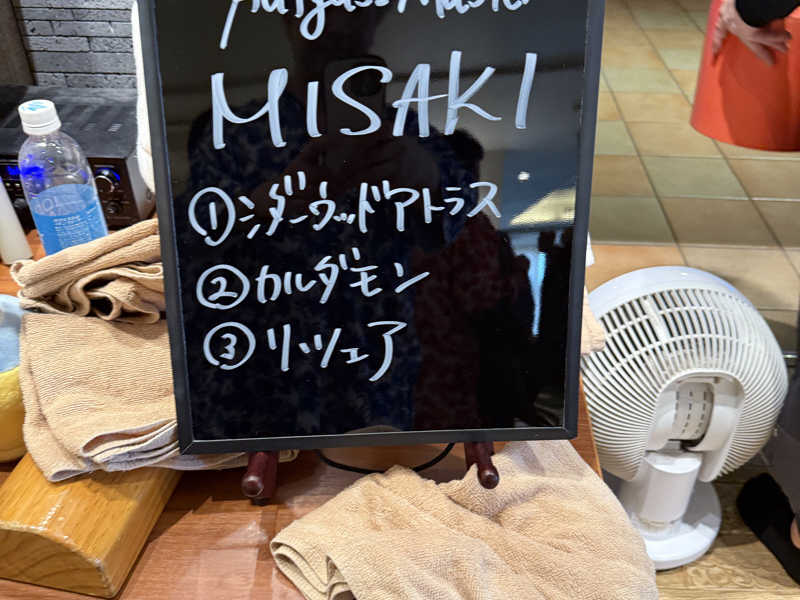 Aufguss Master
MISAKI
①シダーウッドアトラス
②カルダモン
③リツェア